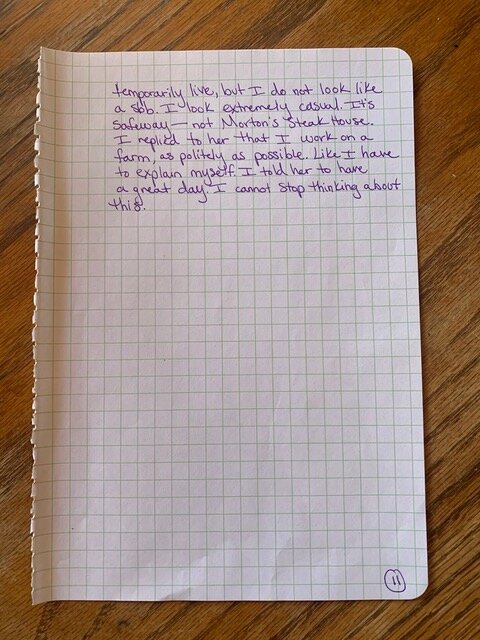 temporarily live, but I do not look like
a slob. I look extremely casual. It's
Safeway — not Morton's Steak House.
I replied to her that I work on a
farm, as politely as possible. Like I have
to explain myself. I told her to have
a great day. I cannot stop thinking about
this.
11